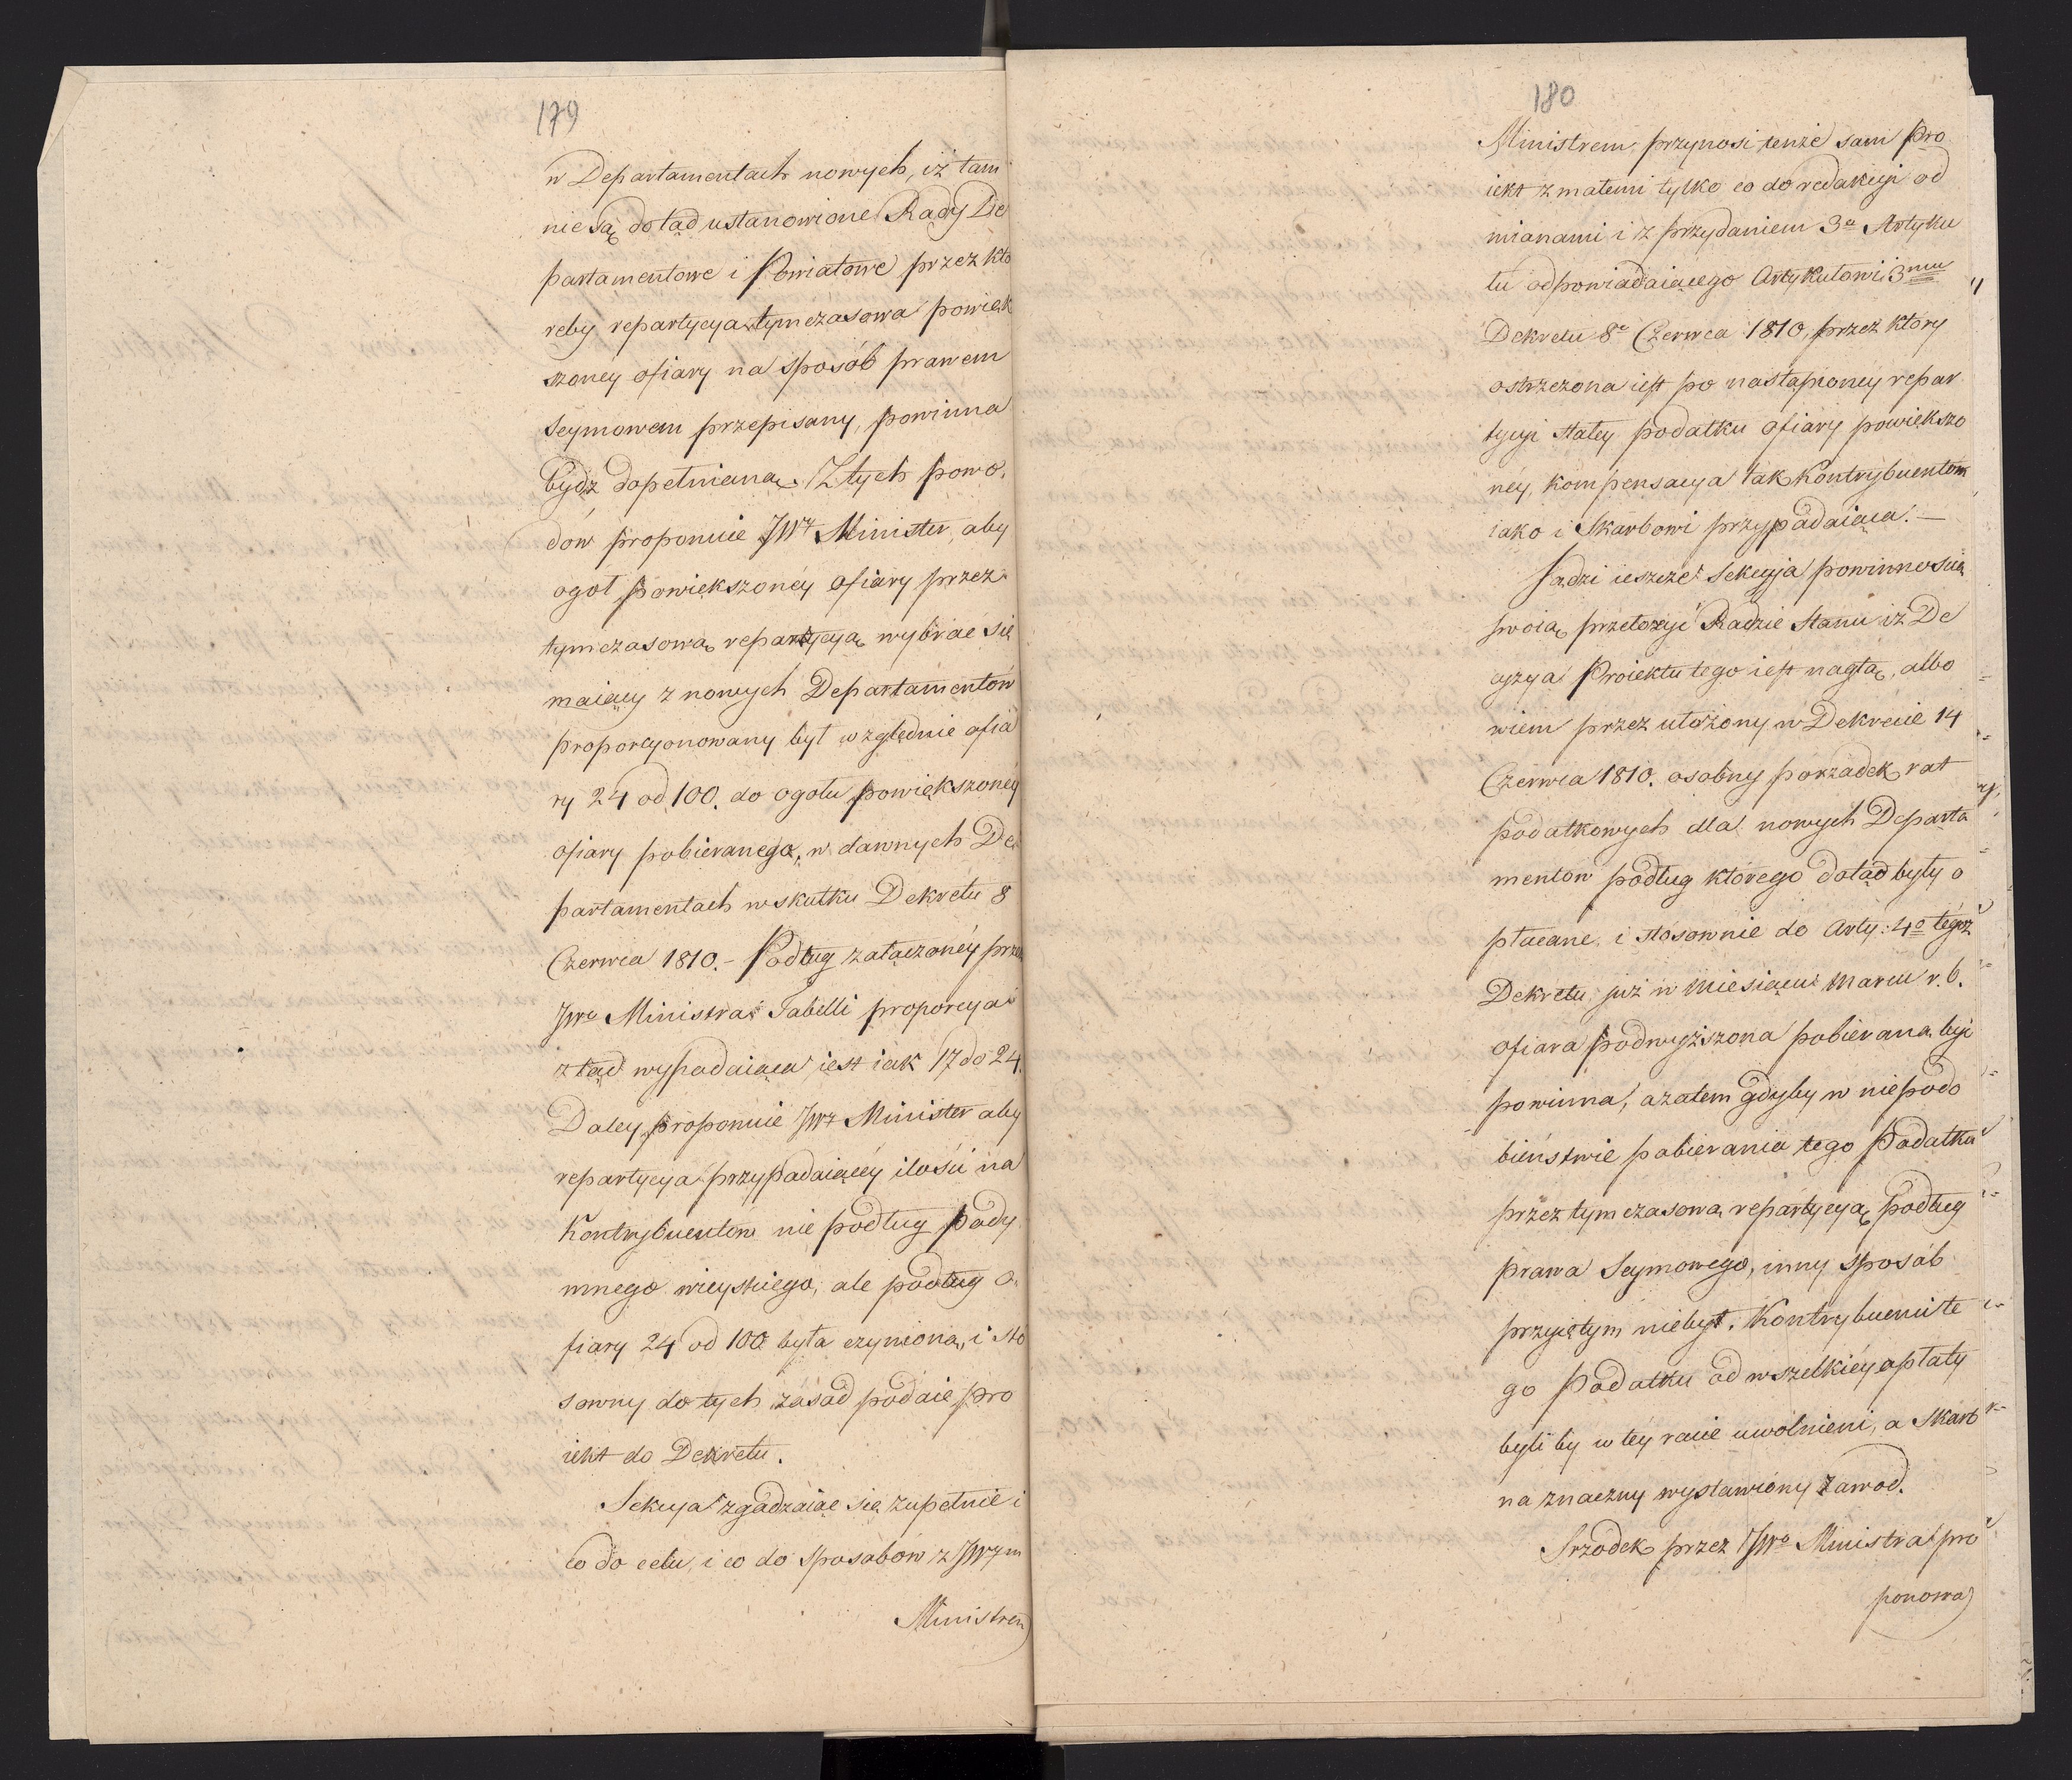 179
w Departamentach nowych, iż tam
nie są dotąd ustanowione Rady De
partamentowe i Powiatowe przez któ
reby repartycya tymczasowa powięk
szoney ofiary na sposób prawem
Seymowem przepisany, powinna
bydź dopełniana. Z tych powo.
dów proponuie JWy Minister, aby
ogół powiększonéy ofiary przez
tymczasową repartycyą wybrać się
maiący z nowych Departamentów
proporcyonowany był względnie ofia
ry 24 od 100. do ogołu powiększonéy
ofiary pobieranego, w dawnych De
partamentach w skutku Dekretu 8
Czerwca 1810. – Podług załączonéy przez
JWo Ministra Tabelli proporcya
ztąd wypadaiąca iest iak 17 do 24.
Daley proponuie JWy Minister aby
repartycya przypadaiącéy ilości na
Kontrybuentów nie podług pody
mnego wieyskiego, ale podług o.
fiary 24 od 100 była czyniona, i sto
sowny do tych zasad podaie pro
iekt do Dekretu.
Sekcya zgadzaiąc się zupełnie i
co do celu, i co do sposobów z JWym
Ministrem
180
Ministrem przynosi tenże sam Pro
iekt z małemi tylko co do redakcyi od
mianami i z przydaniem 3o Artyku
łu odpowiadaiącego Artykułowi 3mu
Dekretu 8o Czerwca 1810, przez który
ostrzezona iest po nastąpioney repar
tycyi stałey podatku ofiary powiększo
néy, kompensacya tak Kontrybuentom
iako i Skarbowi przypadaiąca. –
Sądzi ieszcze Sekcyja powinnością
swoią przełożyć Radzie Stanu iż De
cyzya Proiektu tego iest nagłą, albo
wiem przez ułożony w Dekrecie 14
Czerwca 1810. osobny porządek rat
podatkowych dla nowych Departa
mentów podług którego dotąd były o
płacane, i stosownie do Arty: 4o tegoż
Dekretu już w Miesiącu Marcu r. b.
ofiara podwyższona pobierana być
powinna, a zatem gdyby w niepodo
bieństwie pobierania tego Podatku
przez tymczasową repartycyą podług
prawa Seymowego, inny sposób
przyiętym niebył. Kontrybuenci te
go Podatku od wszelkiéy opłaty
byliby w téy racie uwolnieni, a Skarb
na znaczny wystawiony zawod.
Srzodek przez JWo Ministra pro
ponowa